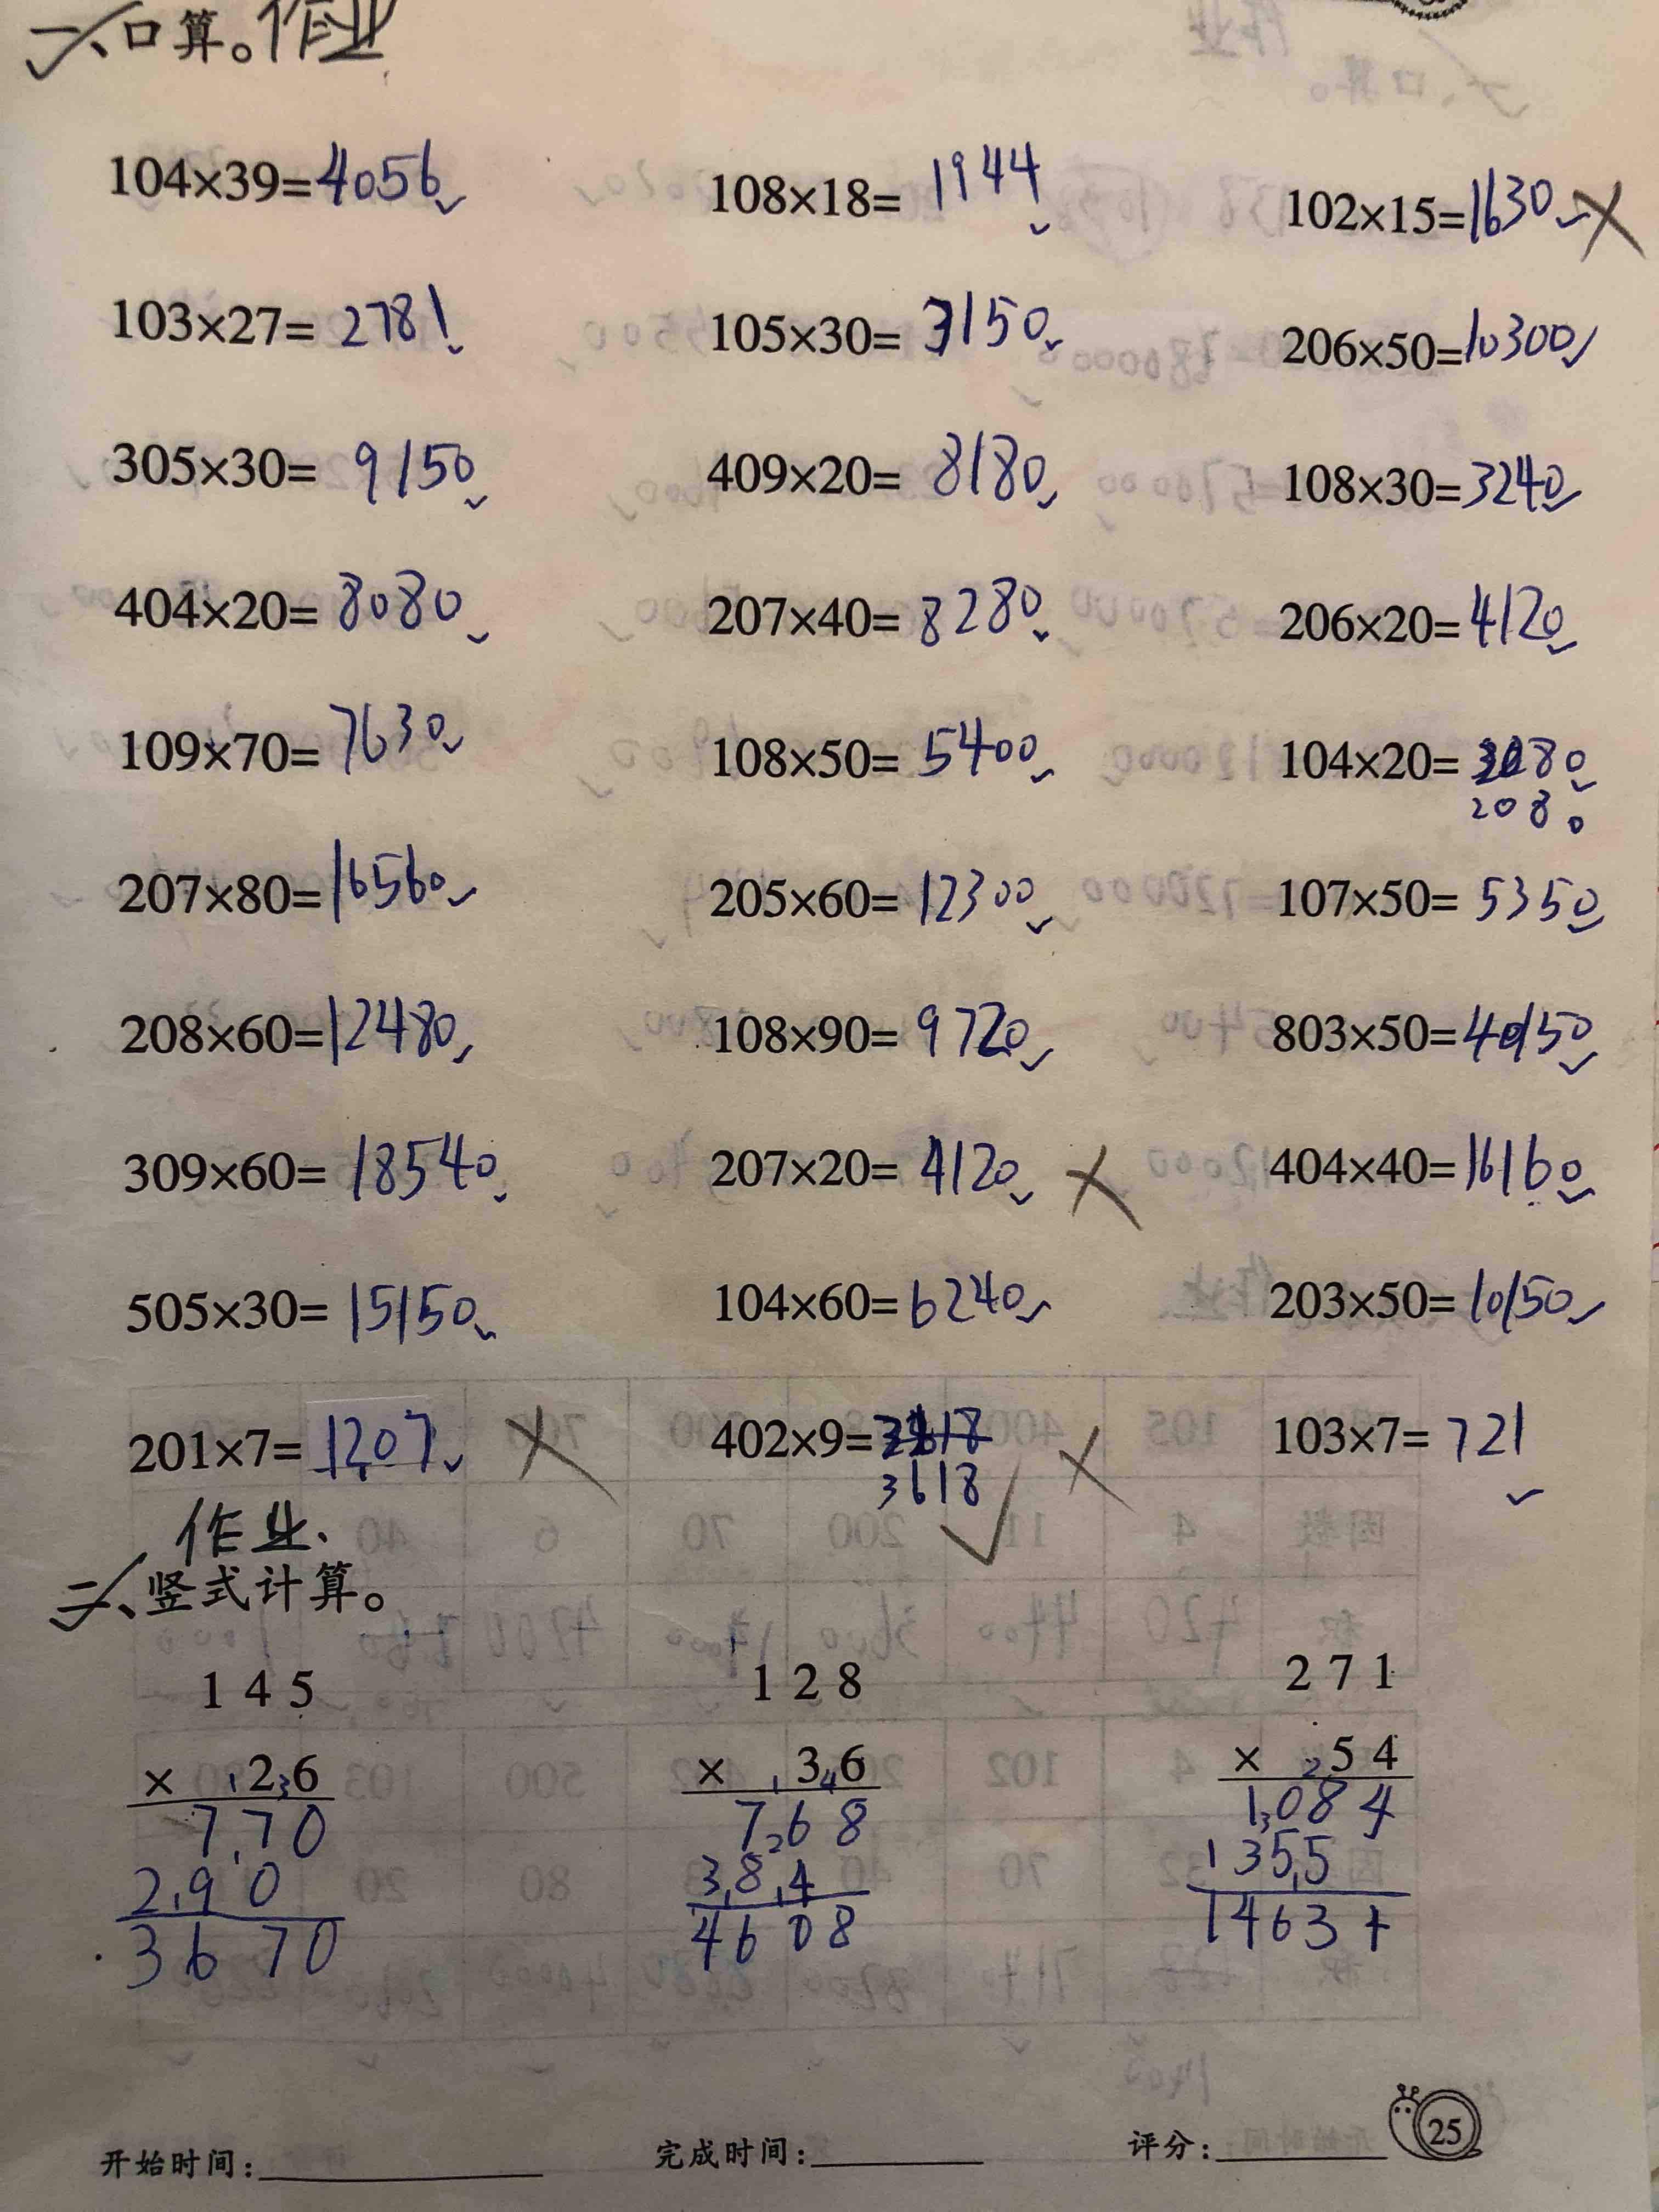 一、口算。作业
104×39=4056 108×18=1944 102×15=1630
103×27=2781 105×30=3150 206×50=10300
305×30=9150 409×20=8180 108×30=3240
404×20=8080 207×40=8280 206×20=4120
109×70=7630 108×50=5400 104×20=
2080
207×80=16560 205×60=12300 107×50=5350
208×60=12480 108×90=9720 803×50=40150
309×60=18540 207×20=4120 404×40=16160
505×30=15150 104×60=6240 203×50=10150
201×7=1207 402×9= 103×7=721
3618
作业、
二、竖式计算。
145 128 271
× 26 × 36 × 54
770 768 1084
290 384 1355
3670 4608 1463
开始时间: 完成时间: 评分: 25